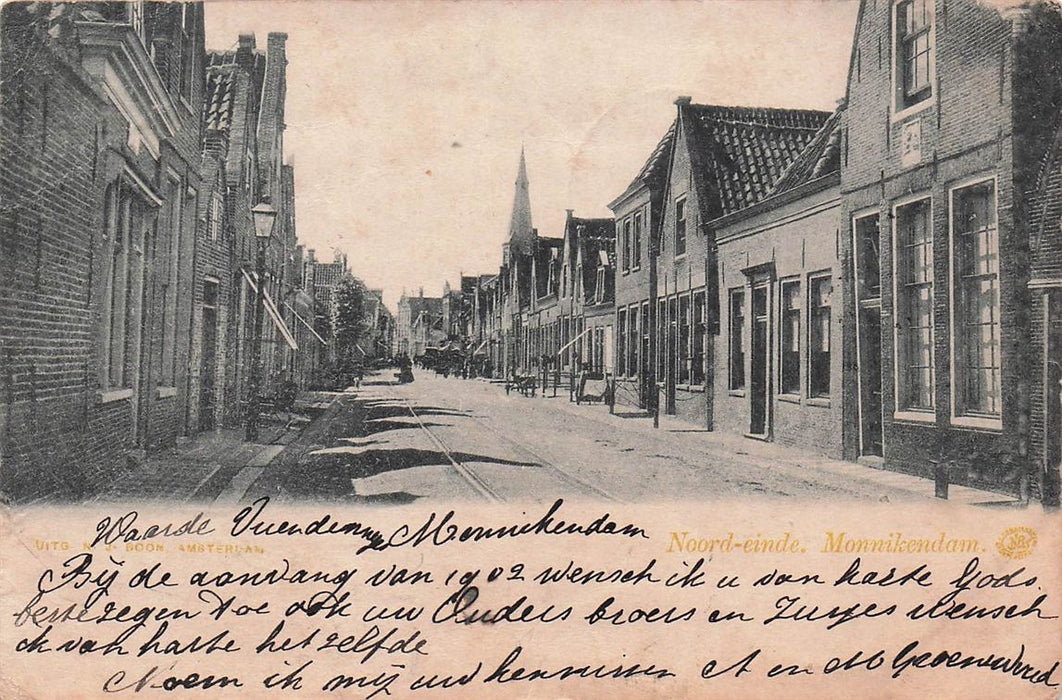 Waarde Vriendennye Monnikendam
UITG. N. J. BOON, AMSTERDAM.
Noord-einde. Monnikendam.
Bij de aanvang van 1902 wensch ik u van harte Gods
beste zegen toe ook uw Ouders broers en Zusjes wensch
ik van harte het zelfde
Noem ik mij uw kennissen A en M Groenewoud